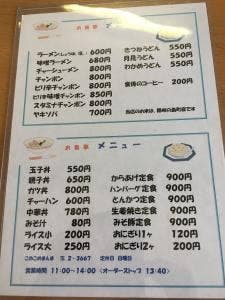 お食事
ラーメン(しょうゆ、塩) 600円
味噌ラーメン 680円
チャーシューメン 800円
チャンポン 800円
ピリ辛チャンポン 800円
ピリ辛味噌チャンポン 850円
スタミナチャンポン 900円
ヤキソバ 700円
きつねうどん 550円
月見うどん 550円
わかめうどん 550円
食後のコーヒー 200円
お食事 メニュー
玉子丼 550円
親子丼 650円
カツ丼 800円
チャーハン 600円
中華丼 780円
みそ汁 80円
ライス小 200円
ライス大 250円
からあげ定食 900円
ハンバーグ定食 900円
とんかつ定食 900円
生姜焼き定食 900円
みそ豚定食 900円
おにぎり1ケ 120円
おにぎり2ヶ 200円
2-3667 定休日 日曜日
営業時間 11:00~14:00 <オーダーストップ 13:40>